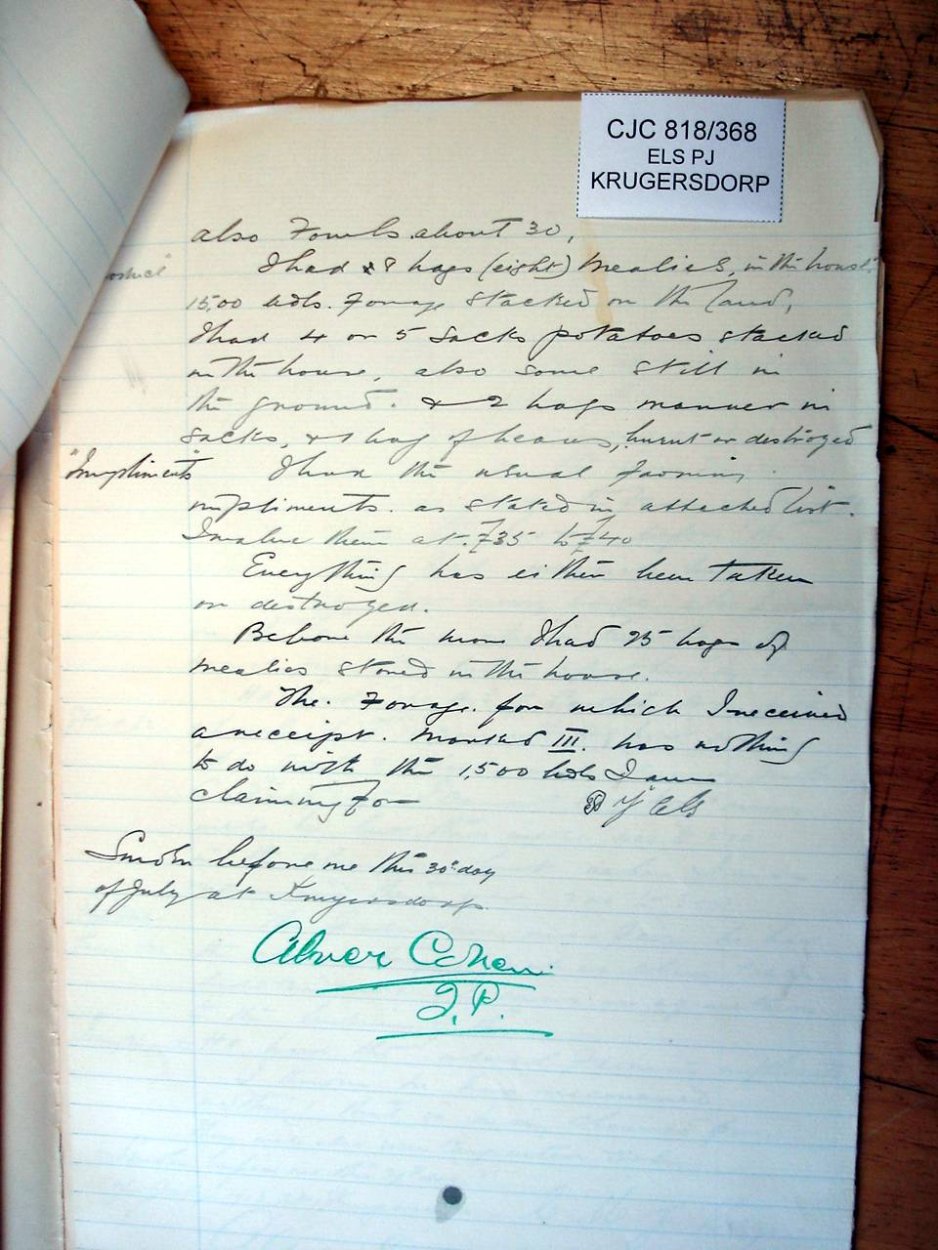 CJC 818/368
ELS PJ
KRUGERSDORP
also Fowls about 30,
I had 8 bags (eight) Mealies, in the house
15,00 bdls. Forage stacked on the land,
I had 4 or 5 sacks potatoes stacked
in the house, also some still in
the ground. & 2 bags manner in
sacks, & 1 bag of beans, burnt or destroyed
"Impliments" I had the usual farming
impliments. as stated in attached list.
I value them at. £35 to £40
Everything has either been taken
or destroyed.
Before the war I had 25 bags of
mealies stored in the house.
The. Forage. for which I received
a receipt. marked III. has nothing
to do with the 1,500 bdls I am
claiming for
P J Els
Sworn before me this 30th day
of July at Krugersdorp.
Abner Cohen.
J.P.